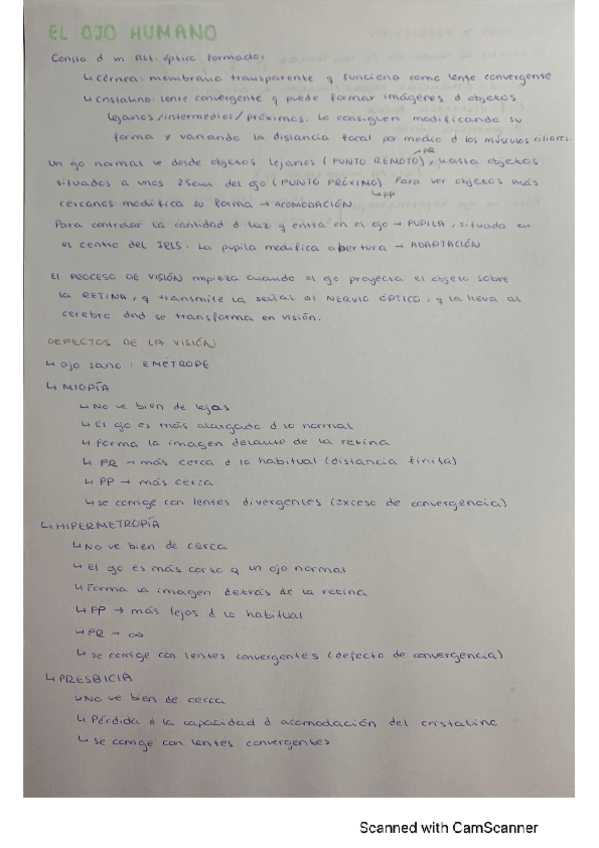 EL OJO HUMANO
Consta d un sist. óptico formado:
↳ Córnea: membrana transparente q funciona como lente convergente
↳ Cristalino: lente convergente q puede formar imágenes d objetos
lejanos/intermedios/próximos. Lo consiguen modificando su
forma y variando la distancia focal por medio d los músculos ciliares.
Un ojo normal ve desde objetos lejanos (PUNTO REMOTO), hasta objetos
PR
situados a unos 25cm del ojo (PUNTO PRÓXIMO). Para ver objetos más
↳PP
cercanos modifica su forma → ACOMODACIÓN
Para controlar la cantidad d luz q entra en el ojo → PUPILA, situada en
el centro del IRIS. La pupila modifica apertura → ADAPTACIÓN
El PROCESO DE VISIÓN empieza cuando el ojo proyecta el objeto sobre
la RETINA, q transmite la señal al NERVIO ÓPTICO, q la lleva al
cerebro dnd se transforma en visión.
DEFECTOS DE LA VISIÓN:
↳ Ojo sano: EMÉTROPE
↳ MIOPÍA
↳ No ve bien de lejos
↳ El ojo es más alargado d lo normal
↳ Forma la imagen delante de la retina
↳ PR → más cerca d lo habitual (distancia finita)
↳ PP → más cerca
↳ se corrige con lentes divergentes (exceso de convergencia)
↳ HIPERMETROPÍA
↳ No ve bien de cerca
↳ El ojo es más corto q un ojo normal
↳ Forma la imagen detrás de la retina
↳ PP → más lejos d lo habitual
↳ PR → ∞
↳ se corrige con lentes convergentes (defecto de convergencia)
↳ PRESBICIA
↳ No ve bien de cerca
↳ Pérdida d la capacidad d acomodación del cristalino
↳ se corrige con lentes convergentes
Scanned with CamScanner